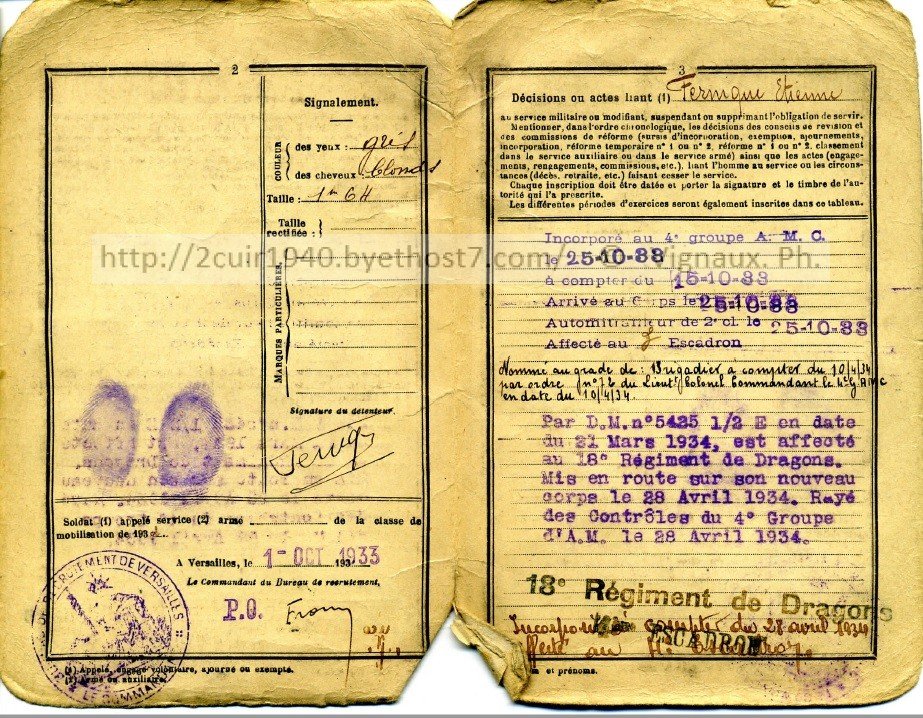 2
Signalement.
COULEUR
des yeux : gris
des cheveux blonds
Taille : 1m 64
Taille
rectifiée :
MARQUES PARTICULIÈRES.
Signature du détenteur.
Soldat (1) appelé service (2) armé de la classe de
mobilisation de 193
A Versailles, le 1 - OCT 1933
Le Commandant du Bureau de recrutement,
P.O.
RECRUTEMENT DE VERSAILLES
LE COMMANDANT
(1) Appelé, engagé volontaire, ajourné ou exempté.
(2) Armé ou auxiliaire.
3
Décisions ou actes liant (1) Fernique Etienne
au service militaire ou modifiant, suspendant ou supprimant l'obligation de servir.
Mentionner, dans l'ordre chronologique, les décisions des conseils de révision et
des commissions de réforme (sursis d'incorporation, exemption, ajournements,
incorporation, réforme temporaire n° 1 ou n° 2, réforme n° 1 ou n° 2, classement
dans le service auxiliaire ou dans le service armé) ainsi que les actes (engage-
ments, rengagements, commissions, etc.), liant l'homme au service ou les circons-
tances (décès, retraite, etc.) faisant cesser le service.
Chaque inscription doit être datée et porter la signature et le timbre de l'auto-
rité qui l'a prescrite.
Les différentes périodes d'exercices seront également inscrites dans ce tableau.
Incorporé au 4e groupe A. M. C.
le 25-10-33
à compter du 15-10-33
Arrivé au Corps le 25-10-33
Automitrailleur de 2e cl. le 25-10-33
Affecté au Escadron
Nommé au grade de : Brigadier à compter du 10/4/34
par ordre n° 72 du Lieut Colonel Commandant le 4e G.A.M.C
en date du 10/4/34.
Par D.M. n°5425 1/2 E en date
du 21 Mars 1934, est affecté
au 18° Régiment de Dragons.
Mis en route sur son nouveau
corps le 28 Avril 1934. Rayé
des Contrôles du 4° Groupe
d'A.M. le 28 Avril 1934.
18e Régiment de Dragons
Incorporé à compter du 28 avril 1934
ESCADRON
et prénoms.
http://2cuir1940.byethost7.com/ - © Vignaux. Ph.